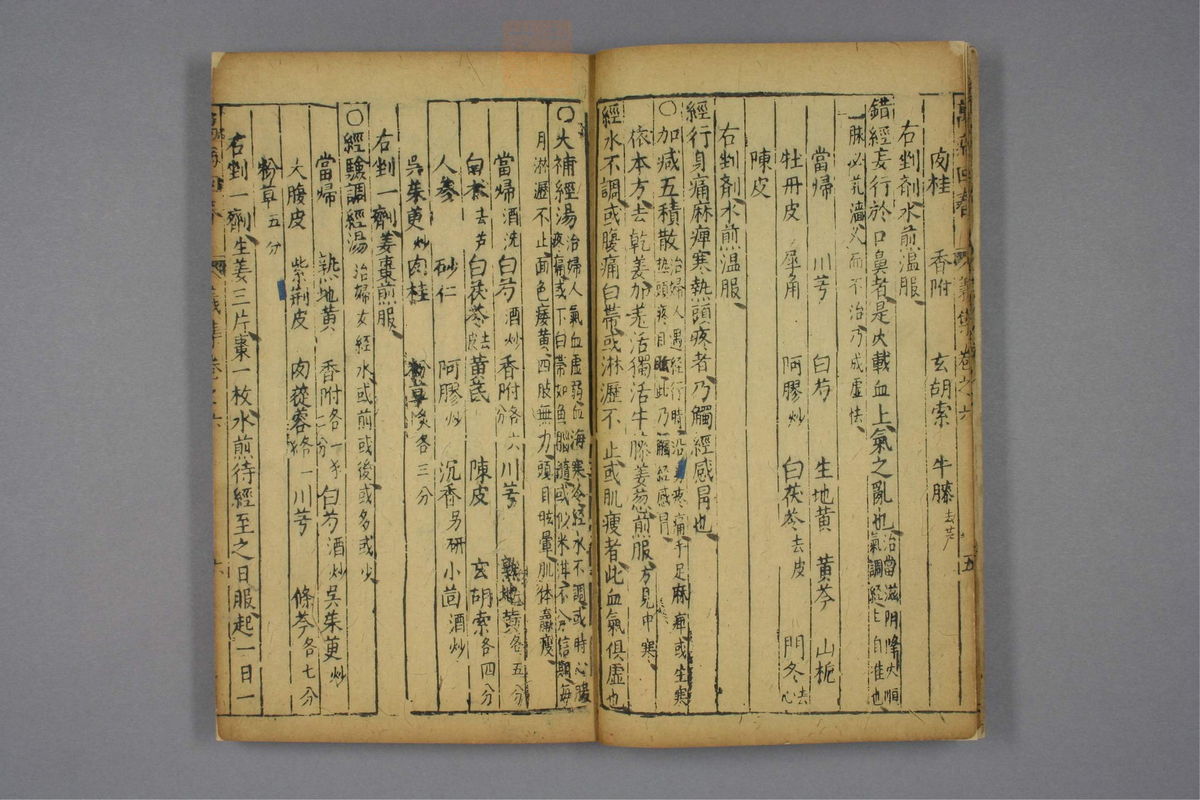 肉桂 香附 玄胡索 牛膝去芦
右剉劑水煎温服
錯經妄行於口鼻者是火載血上氣之亂也治當滋陰降火順氣調經
一脉
當歸 川芎 白芍 生地黄 黄芩 山梔
牡丹皮 犀角 阿膠炒 白茯苓去皮 門冬去心
陳皮
右剉劑水煎温服
經行身痛麻痺寒熱頭疼者乃觸經感冐也
〇加减五積散治婦人遇經行時沿身疼痛手足麻痺或生寒热頭疼目眩此乃觸經感冐
依本方去乾姜加羌活獨活牛膝姜葱煎服方見中寒
經水不調或腹痛白帶或淋瀝不止或肌瘦者此血氣俱虚也
〇大補經湯治婦人氣血虚弱血海寒冷經水不調或時心腹疼痛或下白帶如魚腦髓或似米泔不分信期每
月淋瀝不止面色痿黄四肢無力頭目眩暈肌体羸瘦
當歸酒洗 白芍酒炒 香附各六分 川芎 熟地黄各五分
白朮去芦 白茯苓去皮 黄芪 陳皮 玄胡索各四分
人參 砂仁 阿膠炒 沉香另研 小茴酒炒
吳茱萸炒 肉桂 粉草炙各三分
右剉一劑姜棗煎服
〇經驗調經湯治婦女經水或前或後或多或少
當歸 熟地黄 香附各一 白芍酒炒 吳茱萸炒
大腹皮 紫荆皮 肉蓯蓉各一 川芎 條芩各七分
粉草五分
右剉一劑生姜三片棗一枚水煎待經至之日服起一日一